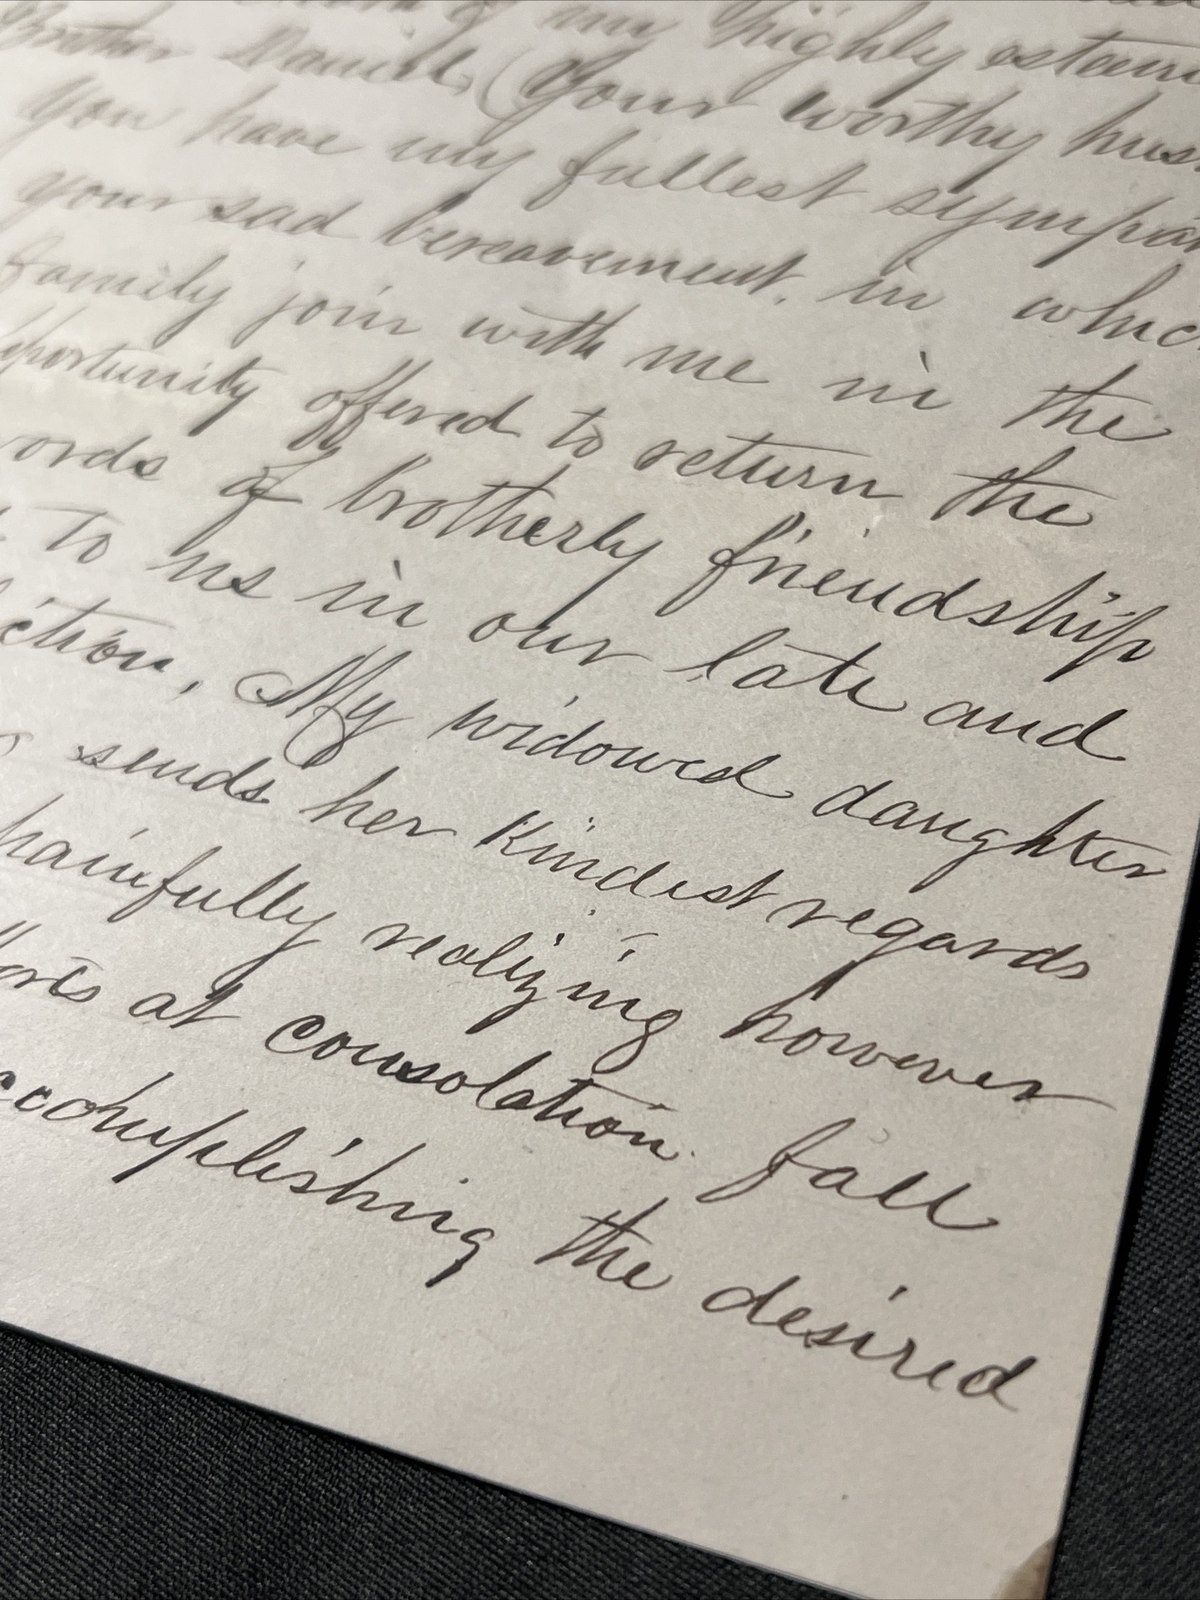 my highly esteem
Brother Daniel, (your worthy hus
you have my fullest sympa
your sad bereavement. in whic
family join with me in the
pportunity offered to return the
ords of brotherly friendship
to us in our late and
ction, My widowed daughter
sends her Kindest regards
painfully realizing however
orts at consolation fall
ccomplishing the desired